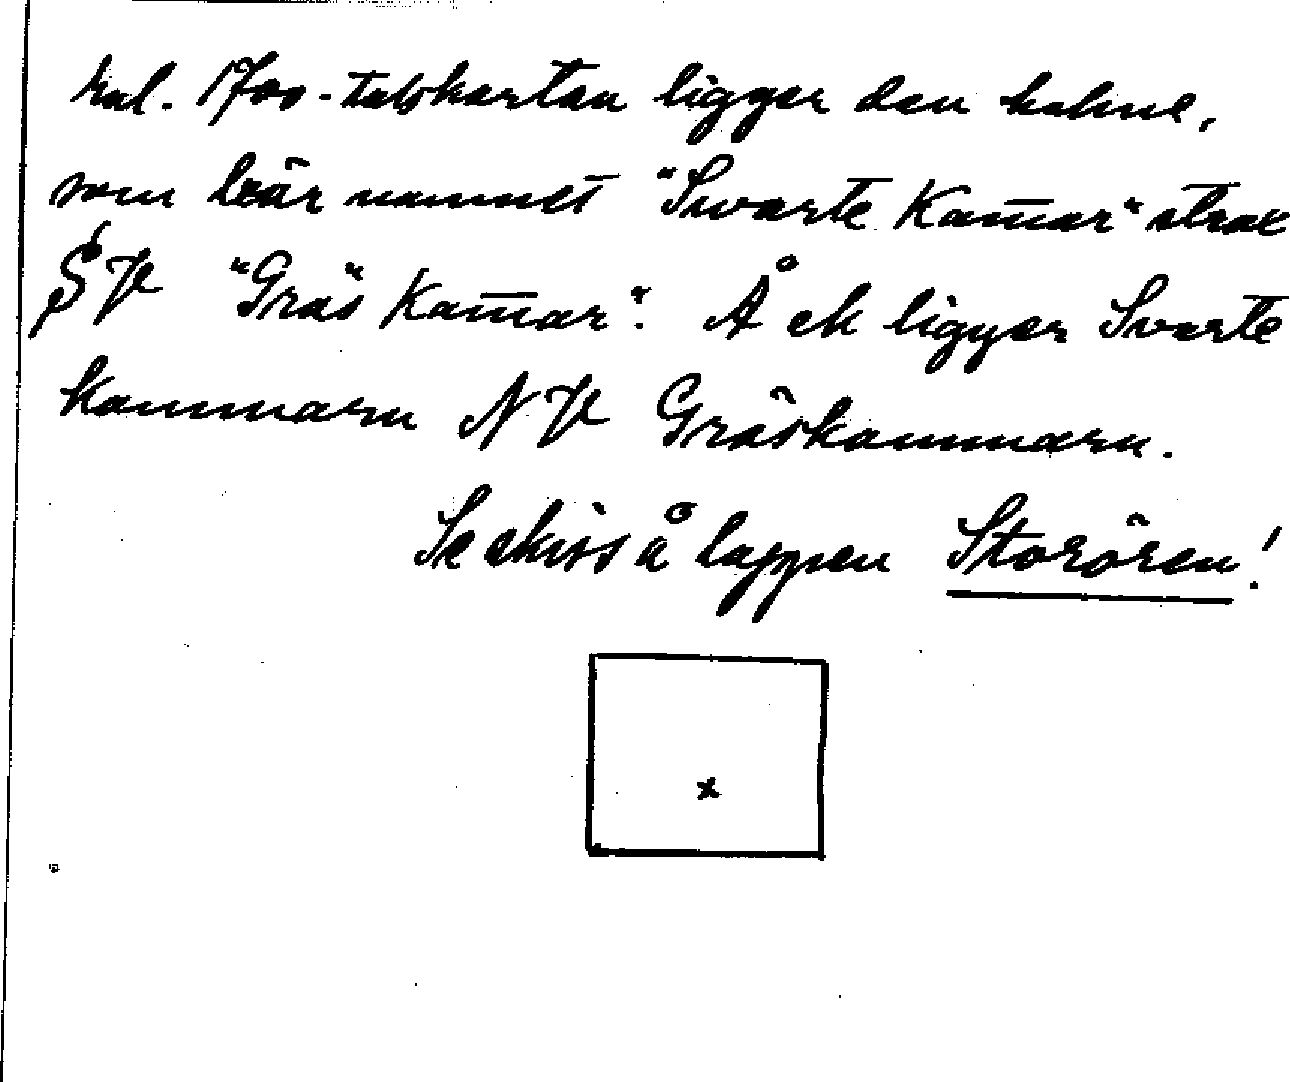 Enl. 1700-talskartan ligger den holme,
som bär namnet "Swarte Kam̅ar" strax
S V "Gräs Kam̅ar". Å ek ligger Svarte
kammarn N V Gräskammarn.
Se skiss å lappen Storören!
x